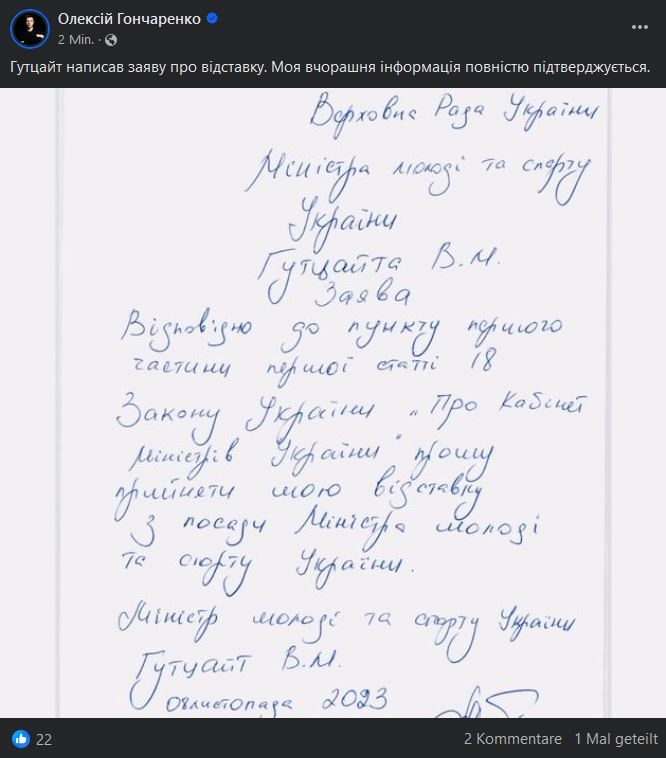 Олексій Гончаренко
2 Min. ·
Гутцайт написав заяву про відставку. Моя вчорашня інформація повністю підтверджується.
Верховна Рада України
Міністра молоді та спорту
України
Гутцайта В.М.
Заява
Відповідно до пункту першого
частини першої статті 18
Закону України „Про Кабінет
Міністрів України" прошу
прийняти мою відставку
з посади Міністра молоді
та спорту України.
Міністр молоді та спорту України
Гутцайт В.М.
листопада 2023
22
2 Kommentare 1 Mal geteilt